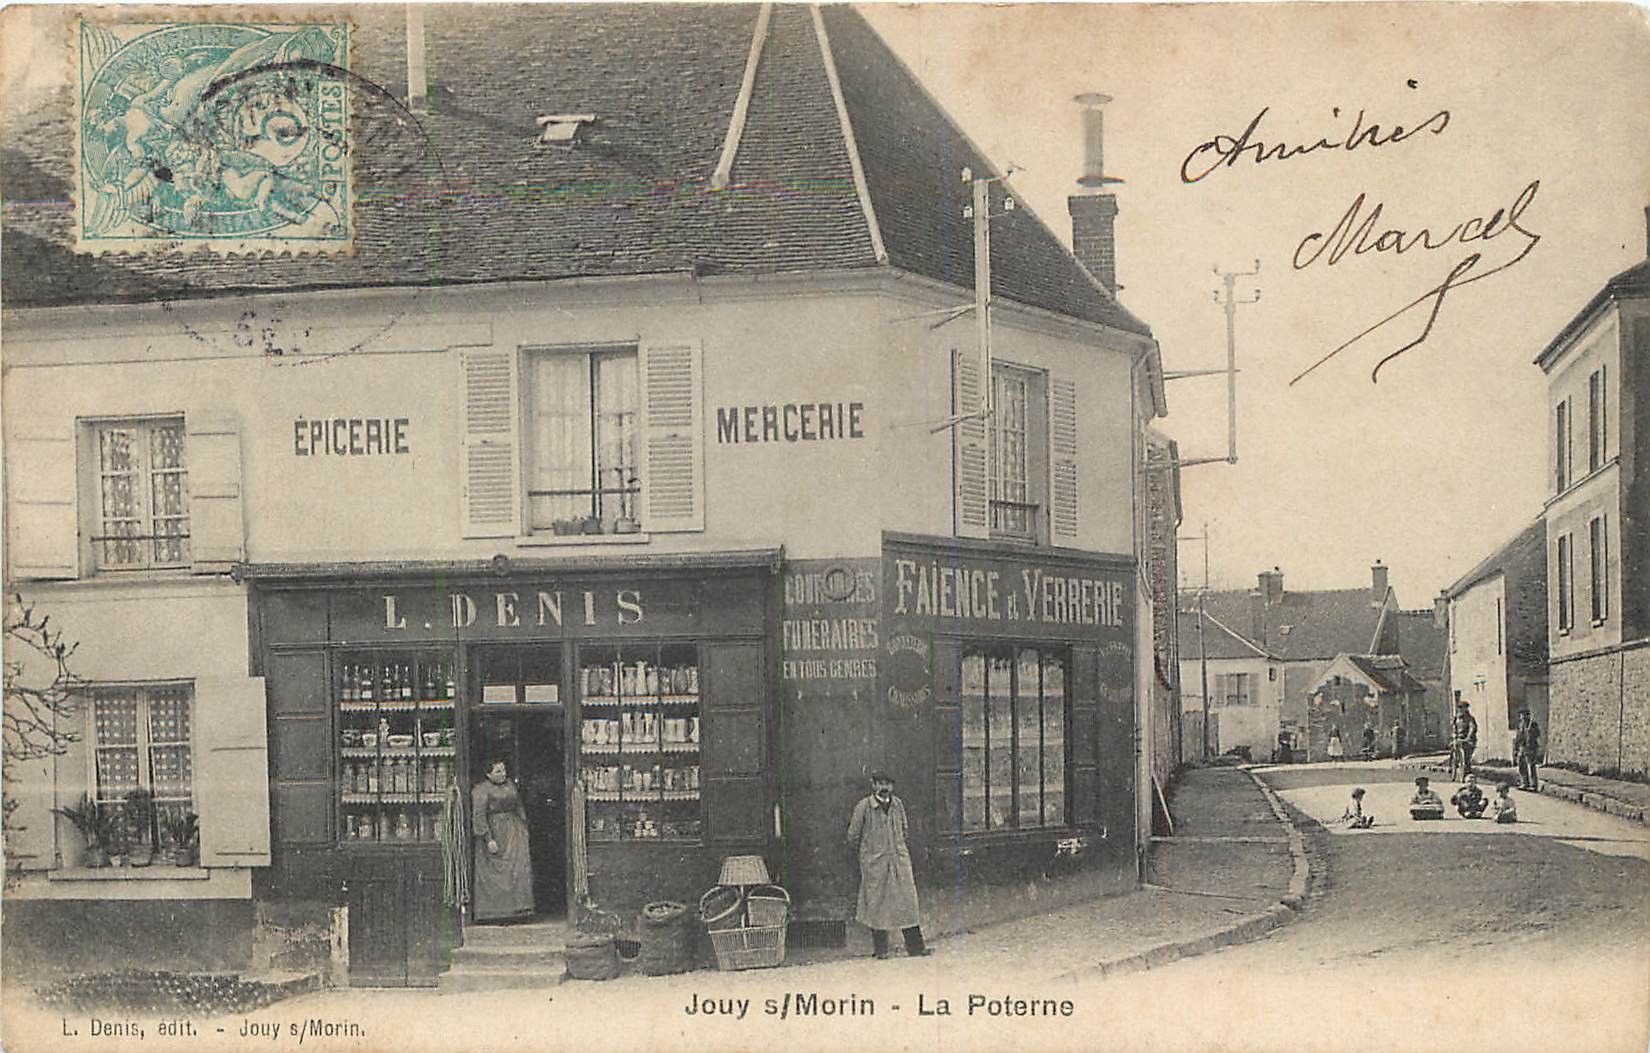 5
POSTES
Amitiés
Marcel
ÉPICERIE
MERCERIE
L. DENIS
COURONNES
FUNÉRAIRES
EN TOUS GENRES
FAÏENCE et VERRERIE
Jouy s/Morin - La Poterne
L. Denis, édit. - Jouy s/Morin.